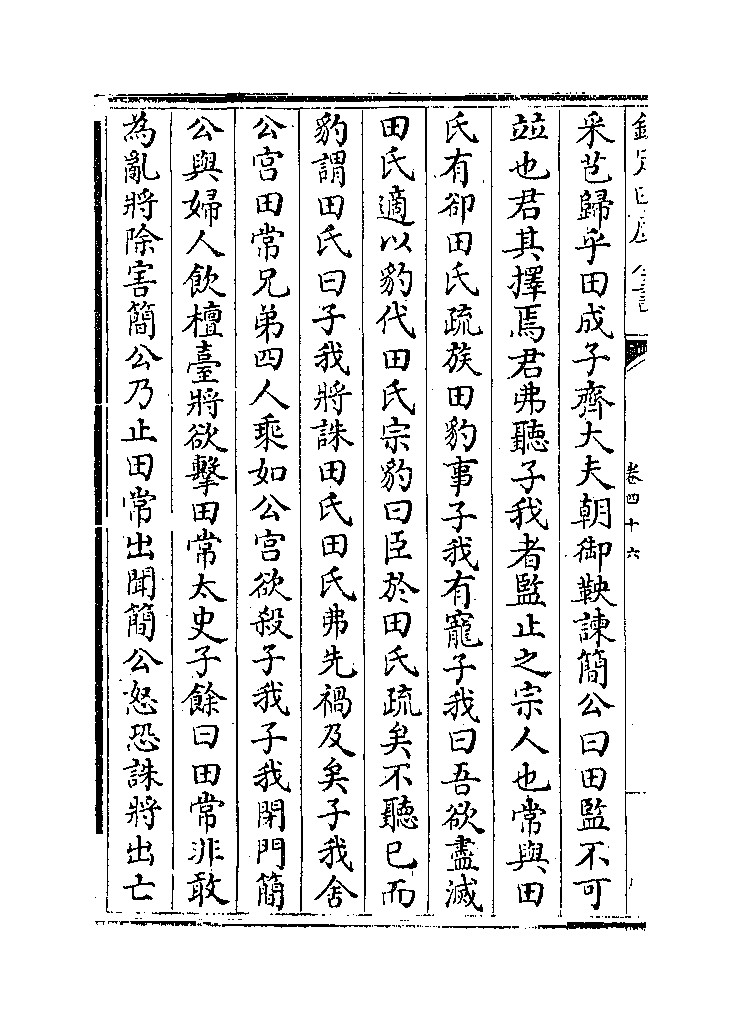 卷四十六
采芑歸乎田成子齊大夫朝御鞅諫簡公曰田監不可
竝也君其擇焉君弗聽子我者監止之宗人也常與田
氏有卻田氏疏族田豹事子我有寵子我曰吾欲盡滅
田氏適以豹代田氏宗豹曰臣於田氏疏矣不聽已而
豹謂田氏曰子我將誅田氏田氏弗先禍及矣子我舍
公宫田常兄弟四人乘如公宫欲殺子我子我閉門簡
公與婦人飲檀臺將欲擊田常太史子餘曰田常非敢
為亂將除害簡公乃止田常出聞簡公怒恐誅將出亡